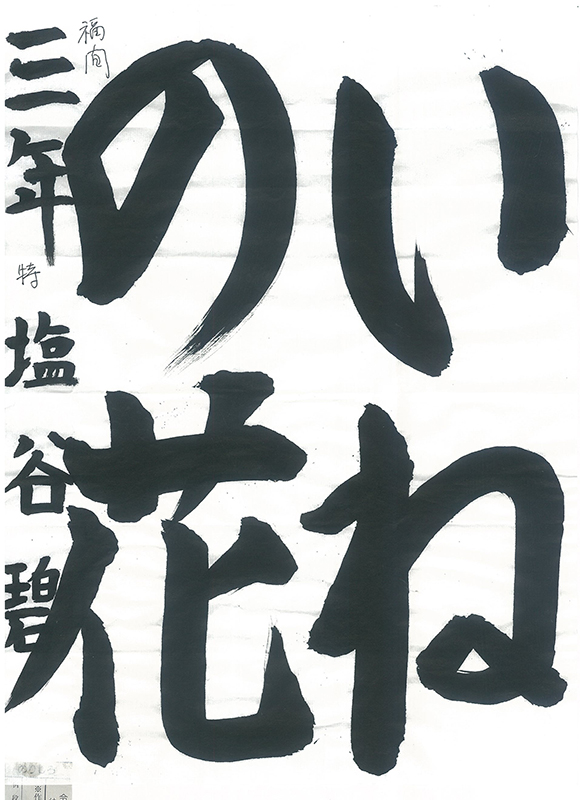 いね
の花
福間
三年
特
塩谷碧